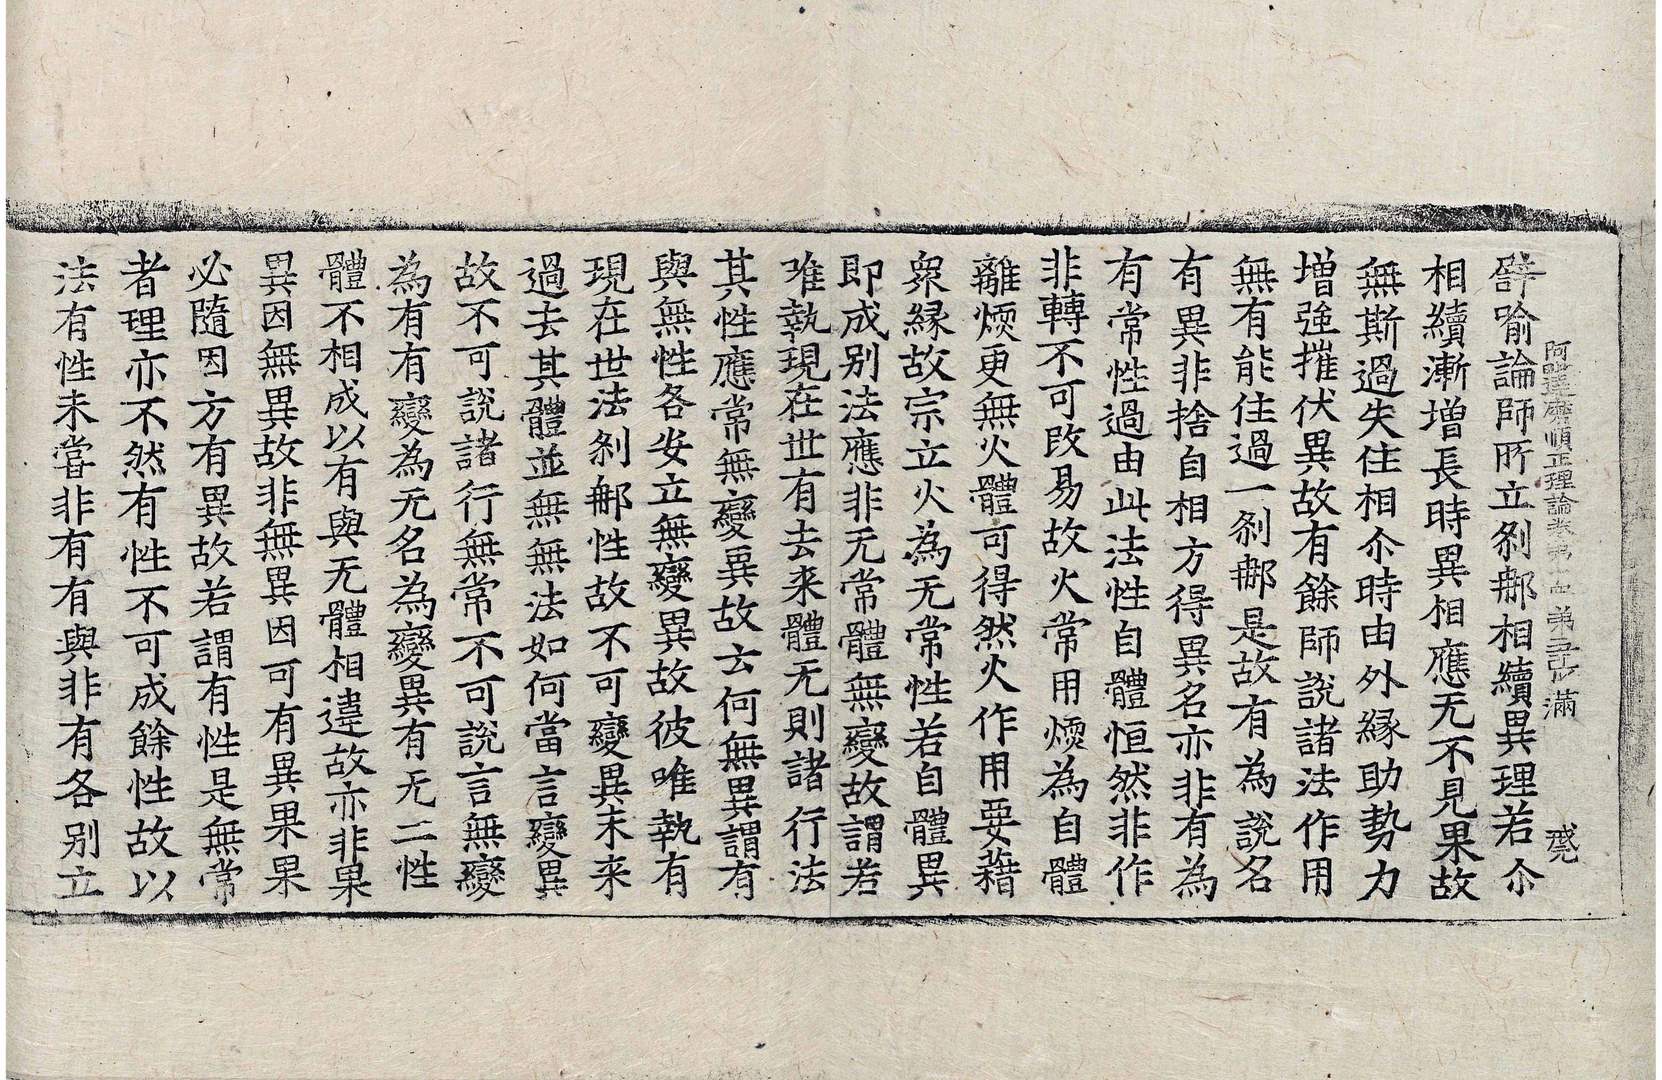 阿毗達磨順正理論卷弟十四 弟五張 滿
譬喻論師所立刹𨙻相續異理若尒
相續漸增長時異相應无不見果故
無斯過失住相尒時由外緣助勢力
增強摧伏異故有餘師說諸法作用
無有能住過一刹𨙻是故有為說名
有異非捨自相方得異名亦非有為
有常性過由此法性自體恒然非作
非轉不可改易故火常用煗為自體
離煗更無火體可得然火作用要藉
衆緣故宗立火為无常性若自體異
即成别法應非无常體無變故謂若
唯執現在世有去来體无則諸行法
其性應常無變異故云何無異謂有
與無性各安立無變異故彼唯執有
現在世法刹𨙻性故不可變異未来
過去其體並無無法如何當言變異
故不可說諸行無常不可說言無變
為有有變為无名為變異有无二性
體不相成以有與无體相違故亦非果
異因無異故非無異因可有異果果
必隨因方有異故若謂有性是無常
者理亦不然有性不可成餘性故以
法有性未嘗非有有與非有各别立